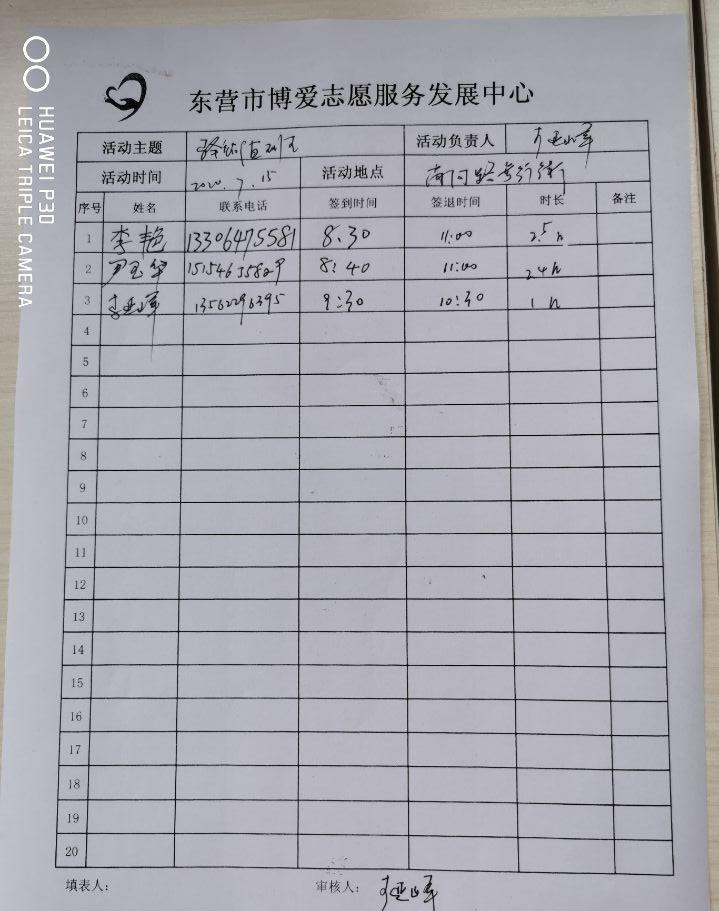 HUAWEI P30
LEICA TRIPLE CAMERA
东营市博爱志愿服务发展中心
活动主题 活动负责人 李亚峰
活动时间 2020.7.15 活动地点
序号 姓名 联系电话 签到时间 签退时间 时长 备注
1 李艳 13306475581 8:30 11:00 2.5h
2 尹玉华 15154635829 8:40 11:00 2.4h
3 李亚峰 13562296395 9:30 10:30 1h
4
5
6
7
8
9
10
11
12
13
14
15
16
17
18
19
20
填表人: 审核人: 李亚峰